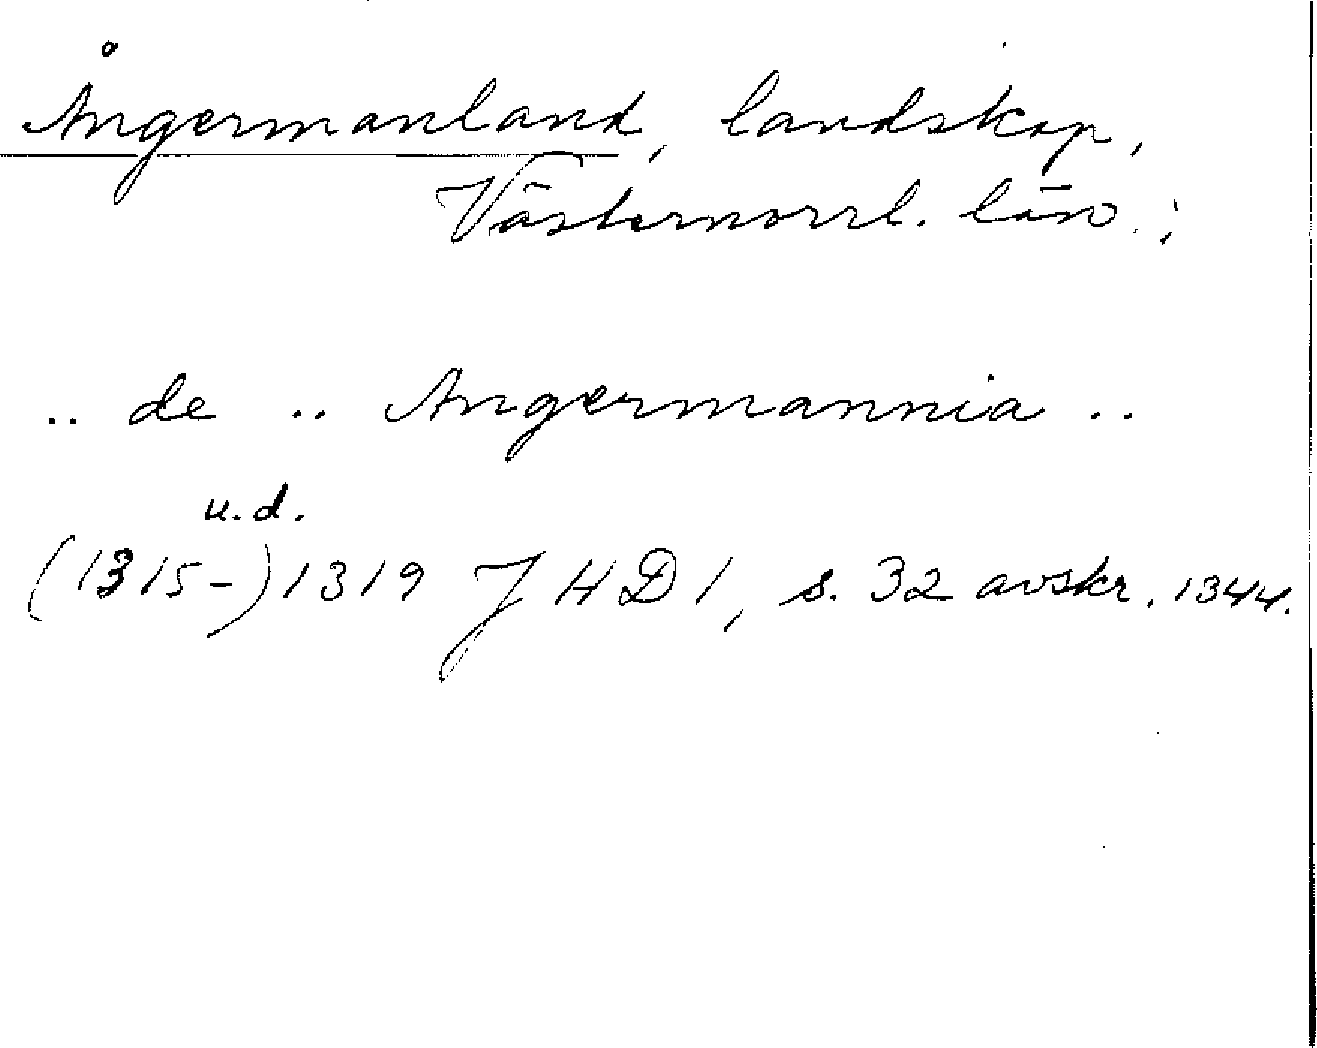 Ångermanland, landskap,
Västernorrl. län.;
.. de .. Angermannia ..
u.d.
(1315-)1319 JHD 1, s. 32 avskr. 1344.